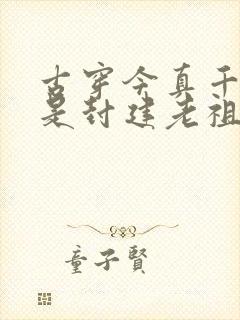 古穿今真千
是封建老祖
童子賢